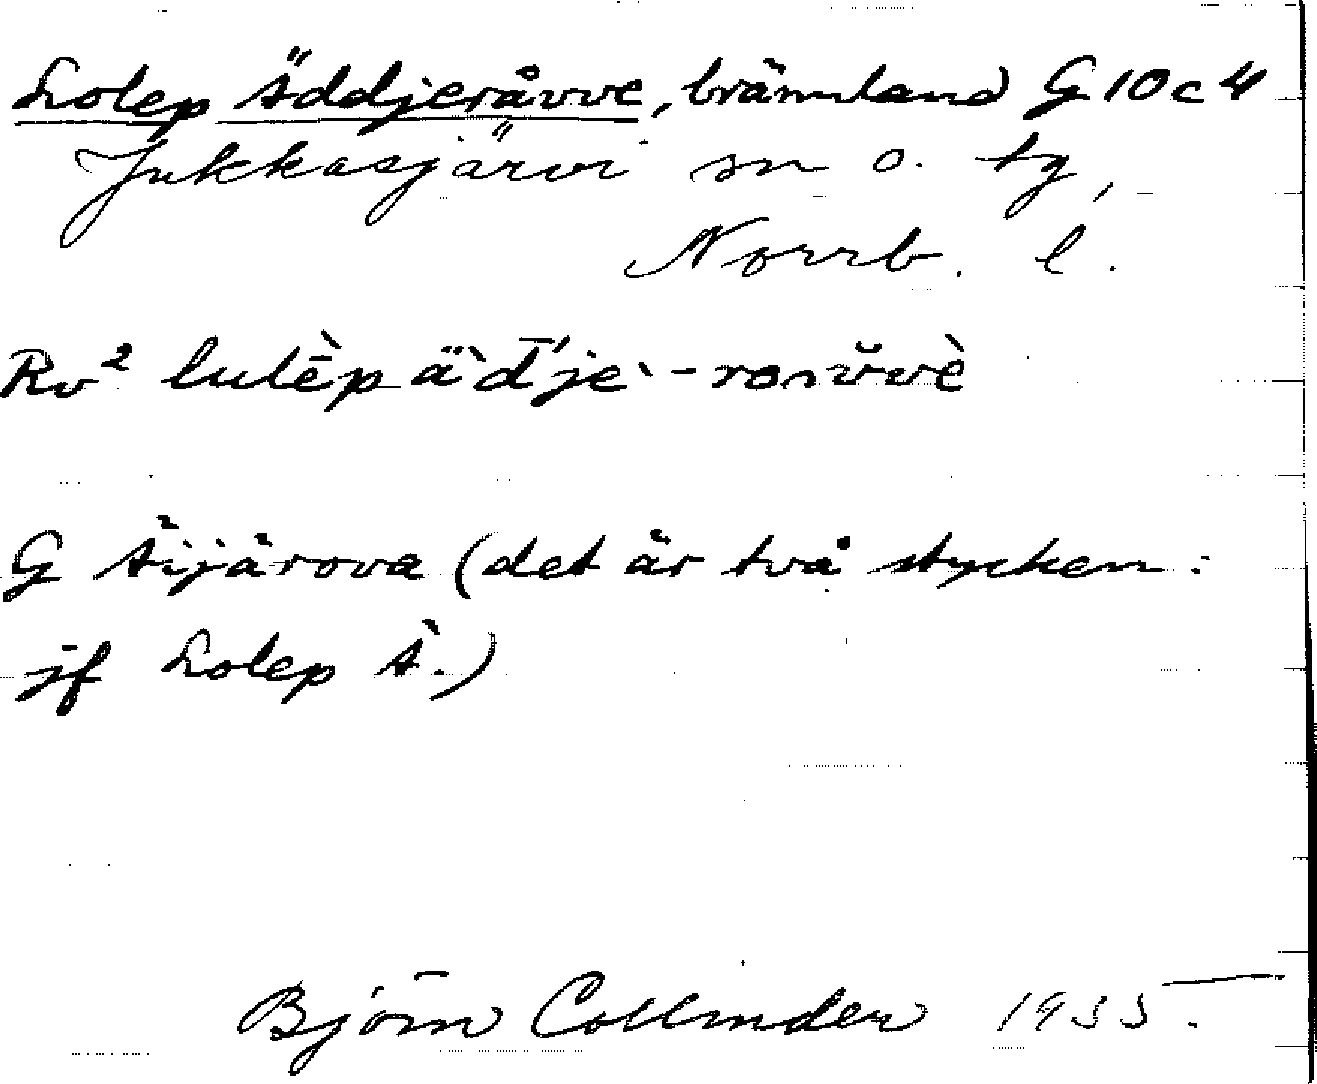 Lolep Äddjeråvve, brännland G 10 c 4
Jukkasjärvi sn o. tg,
Norrb. l.
Rv² lulēp̀ ä̀d̄'jè -roɑv̆vè
G Äijärova (det är två stycken:
jf Lolep Ä.)
Björn Collinder 1955.